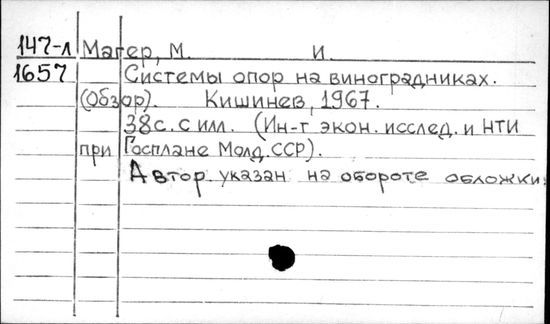 147-л Магер, М. И.
1657 Системы опор на виноградниках.
(Обзор). Кишинев, 1967.
38с. с илл. (Ин-т экон. исслед. и НТИ
при Госплане Молд. ССР).
Автор указан на обороте обложки.